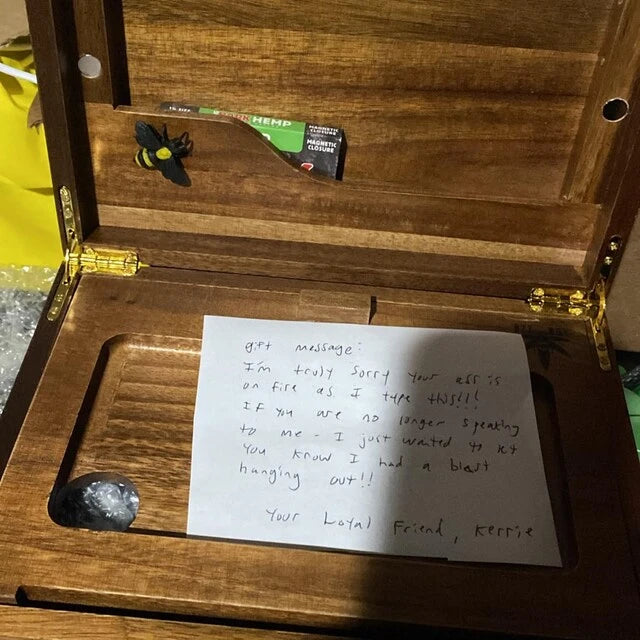 HEMP
MAGNETIC
CLOSURE
MAGNETIC
CLOSURE
gift message:
I'm truly sorry your ass is
on fire as I type this!!!
If you are no longer speaking
to me - I just wanted to let
you know I had a blast
hanging out!!
Your Loyal Friend, Kerrie